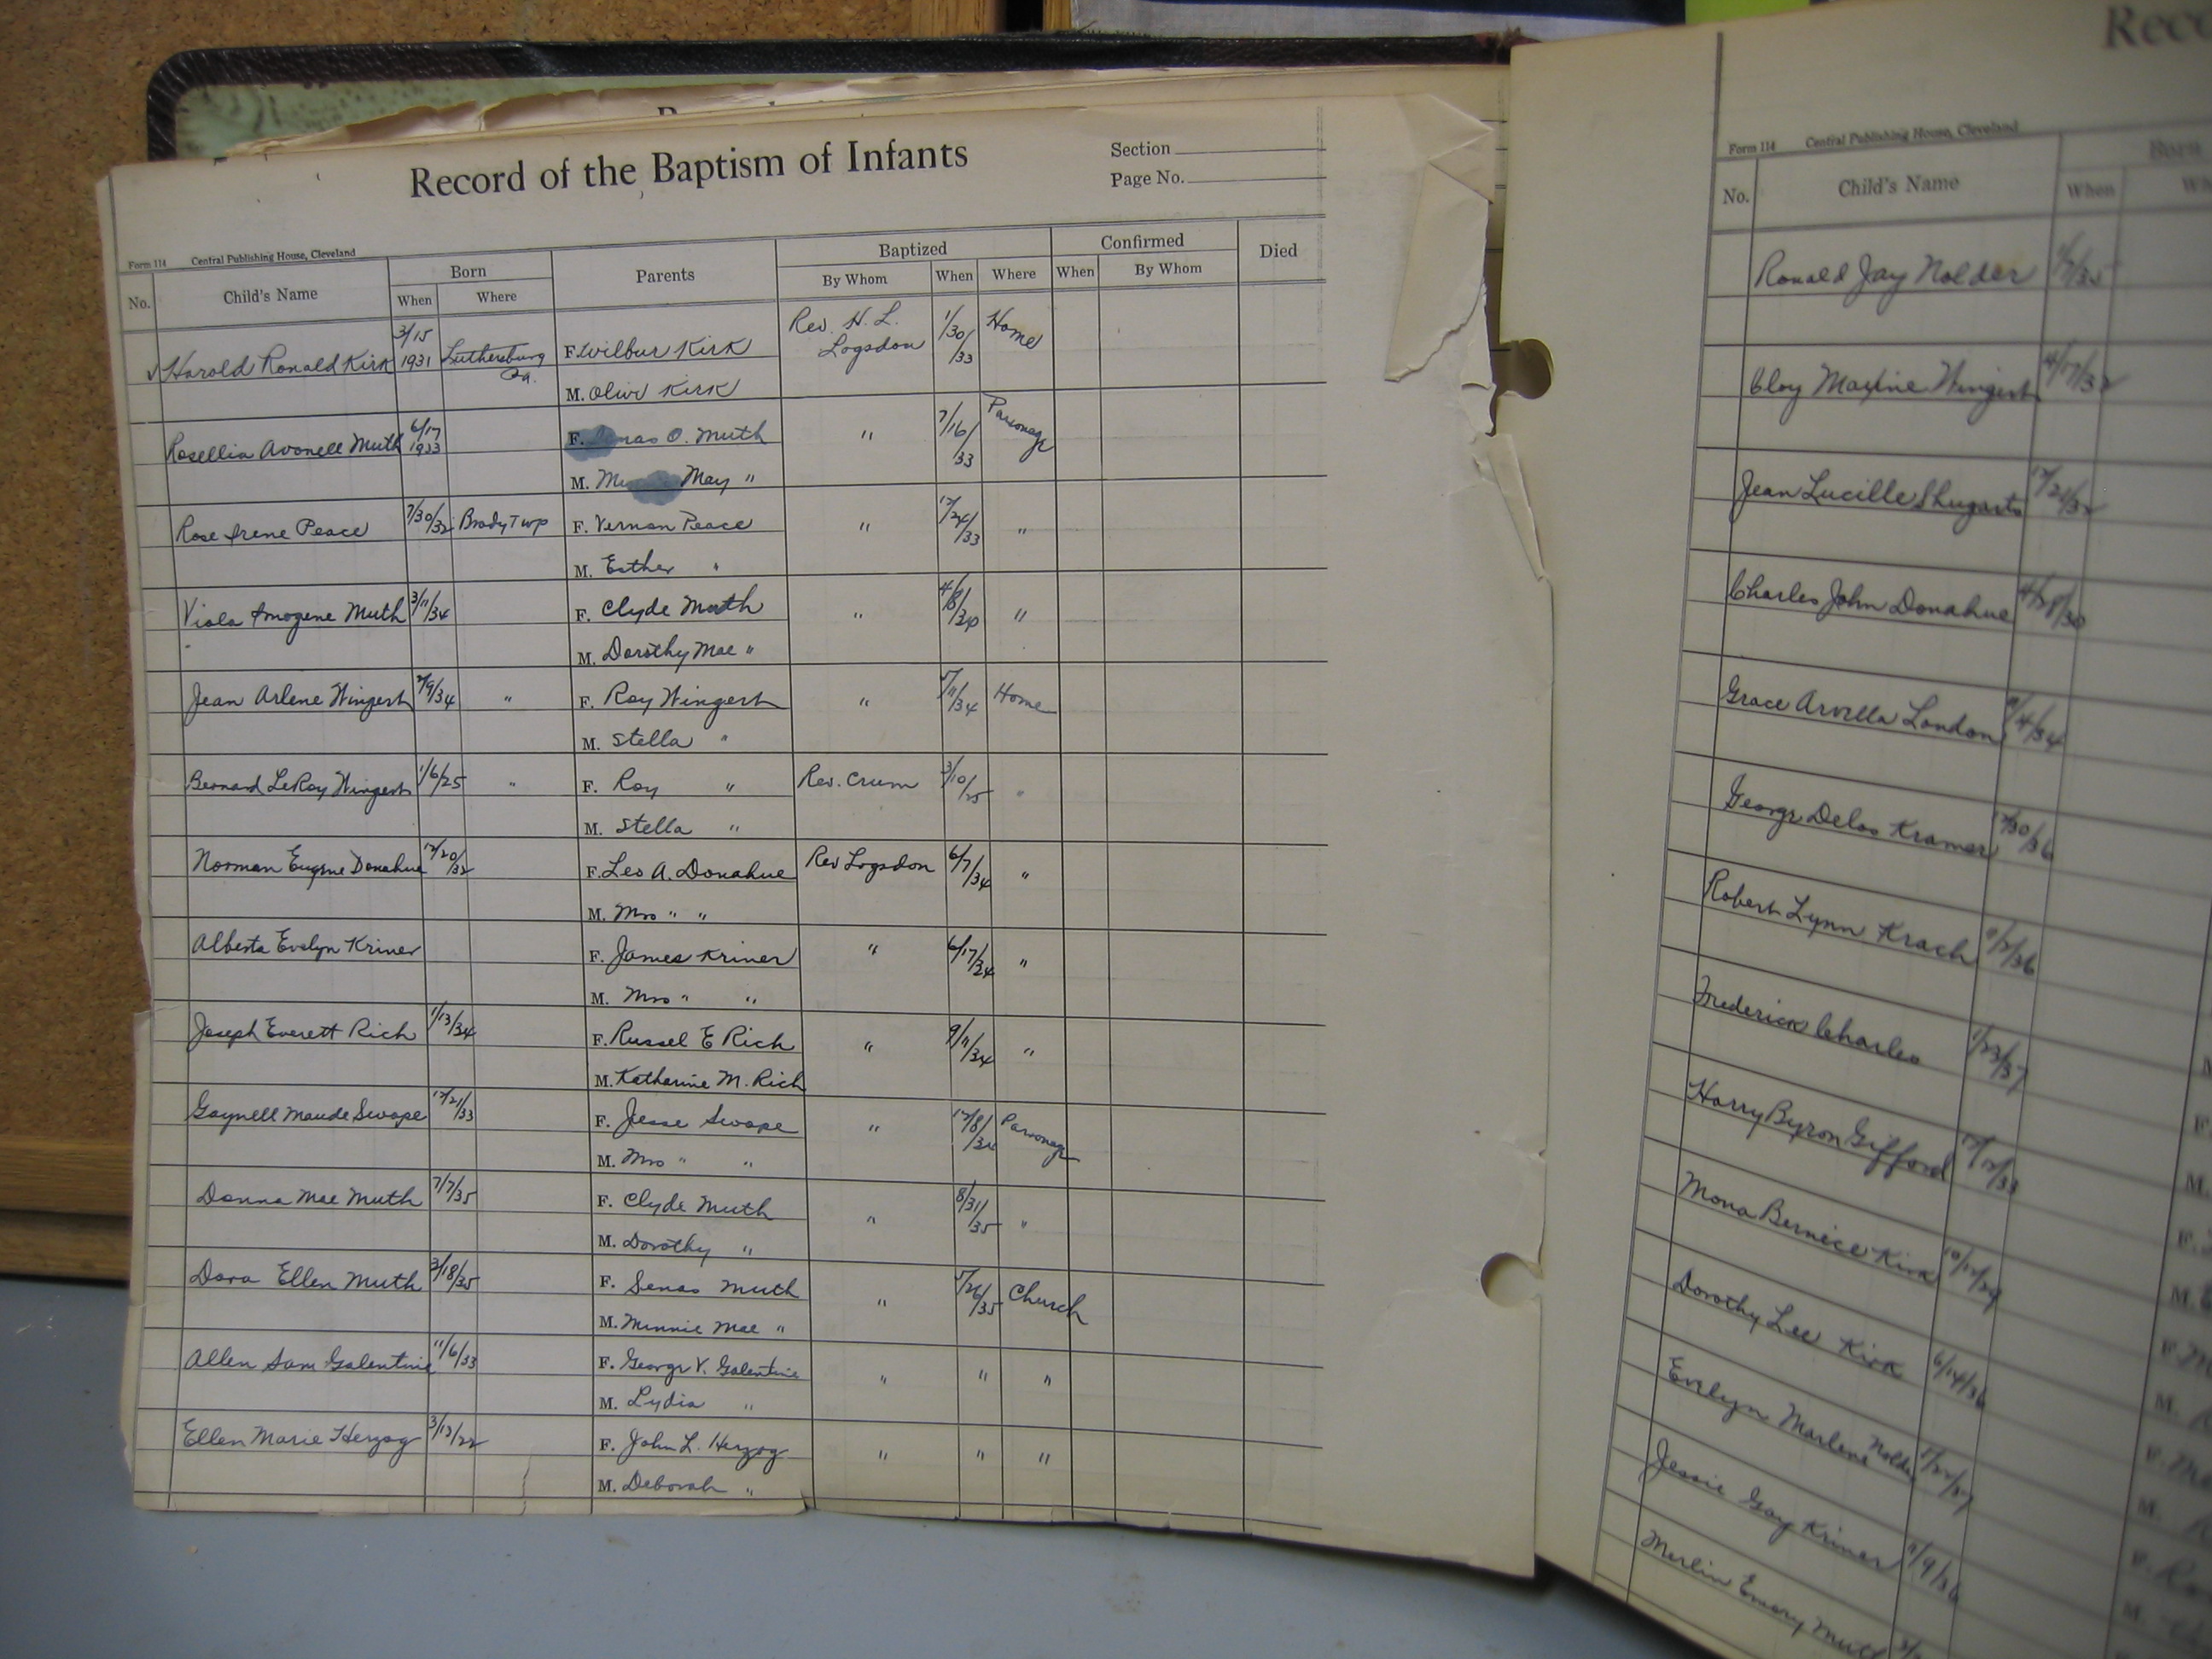 Record of the Baptism of Infants
Section
Page No.
Form 114 Central Publishing House, Cleveland
No. Child's Name Born When Where Parents Baptized By Whom When Where Confirmed When By Whom Died
Harold Ronald Kirk 3/15 1931 Luthersburg Pa. F. Wilbur Kirk Rev. H. L. Logsdon 1/30/33 Home
M. Olive Kirk
Rosellia Avonell Muth 6/17 1933 F. O. Muth " 7/16/33 Parsonage
M. May "
Rose Irene Peace 7/30/32 Brady Twp F. Vernon Peace " 12/24/33 "
M. Esther "
Viola Imogene Muth 3/11/34 F. Clyde Muth " 4/8/34 "
M. Dorothy Mae "
Jean Arlene Wingert 2/9/34 " F. Roy Wingert " 5/11/34 Home
M. Stella "
Bernard LeRoy Wingert 1/6/25 " F. Roy " Rev. Crum 3/10/25 "
M. Stella "
Norman Eugene Donahue 12/20/32 F. Leo A. Donahue Rev Logsdon 6/7/34 "
M. Mrs " "
Alberta Evelyn Kriner F. James Kriner " 6/17/34 "
M. Mrs " "
Joseph Everett Rich 1/13/34 F. Russel E Rich " 9/11/34 "
M. Katharine M. Rich
Gaynell Maude Swope 12/21/33 F. Jesse Swope " 12/8/34 Parsonage
M. Mrs " "
Donna Mae Muth 7/7/35 F. Clyde Muth " 8/31/35 "
M. Dorothy "
Dora Ellen Muth 3/18/35 F. Senas Muth " 5/26/35 Church
M. Minnie Mae "
Allen Sam Galentine 11/6/33 F. George V. Galentine " " "
M. Lydia "
Ellen Marie Herzog 3/13/22 F. John L. Herzog " " "
M. Deborah "
Form 114 Central Publishing House, Cleveland
Born
No. Child's Name When
Ronald Jay Nolder
Cloy Maxine Wingert 4/17/32
Jean Lucille Shugarts 12/24/32
Charles John Donahue
Grace Arvilla London
George Delos Kramer
Robert Lynn Krach
Frederick Charles 1/23/37
Harry Byron Gifford
Mona Bernice Kirk
Dorothy Lee Kirk 6/14/36
Evelyn Marlene Nolder
Jessie Gay Kriner
Merlin Emory Muth